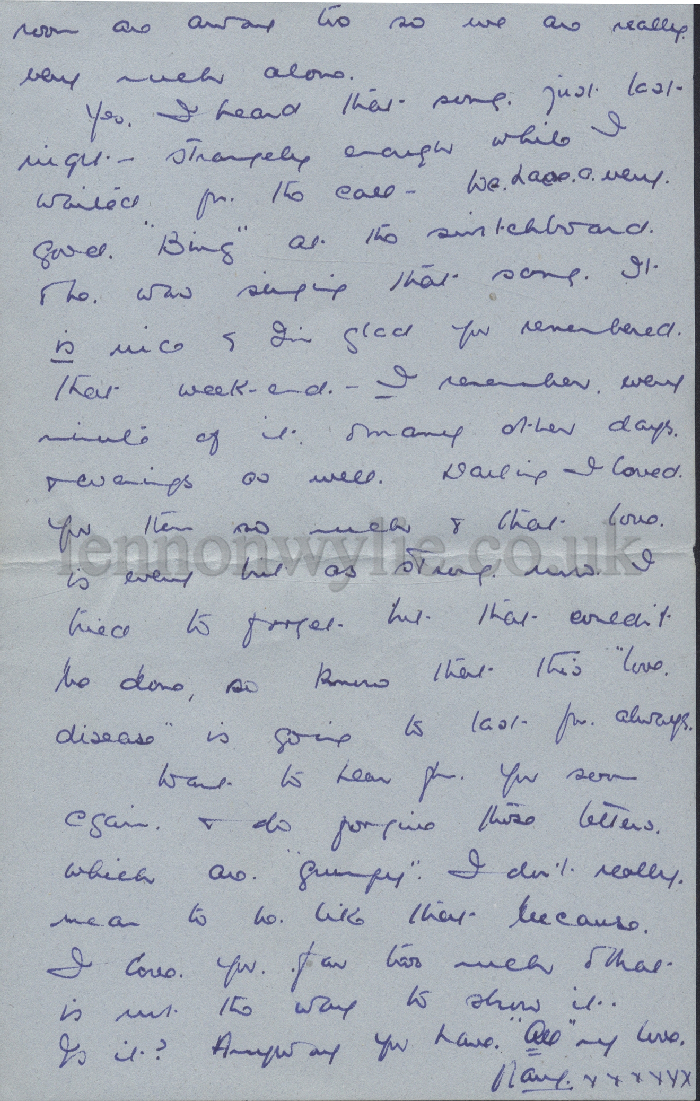 room are away too so we are really
very much alone.
Yes, I heard that song just last
night - strangely enough while I
waited for the call - We have a very
good "Bing" at the switchboard
& he was singing that song. It
is nice & I'm glad you remembered
that week-end. - I remember every
minute of it & many other days
& evenings as well. Darling I loved
you then so much & that love
lennonwylie.co.uk
is every bit as strong now. I
tried to forget but that couldn't
be done, so know that this "love
disease" is going to last for always.
Want to hear from you soon
again & do forgive those letters
which are "grumpy". I don't really
mean to be like that because
I love you far too much & that
is not the way to show it.
Is it? Anyway you have "all" my love.
xxxxxx